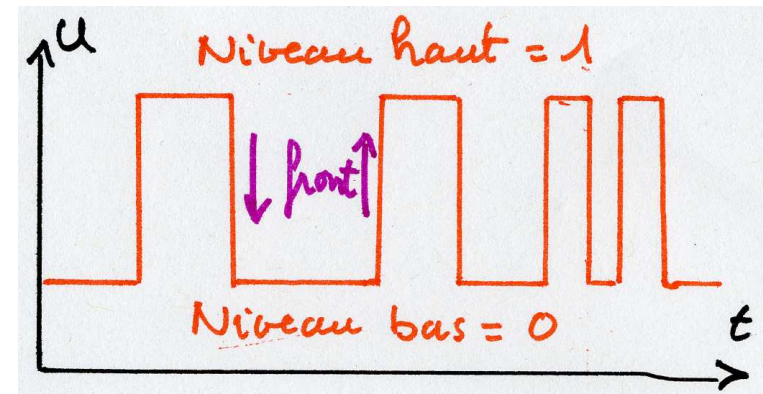 U
Niveau haut = 1
↓ front ↑
Niveau bas = 0
t